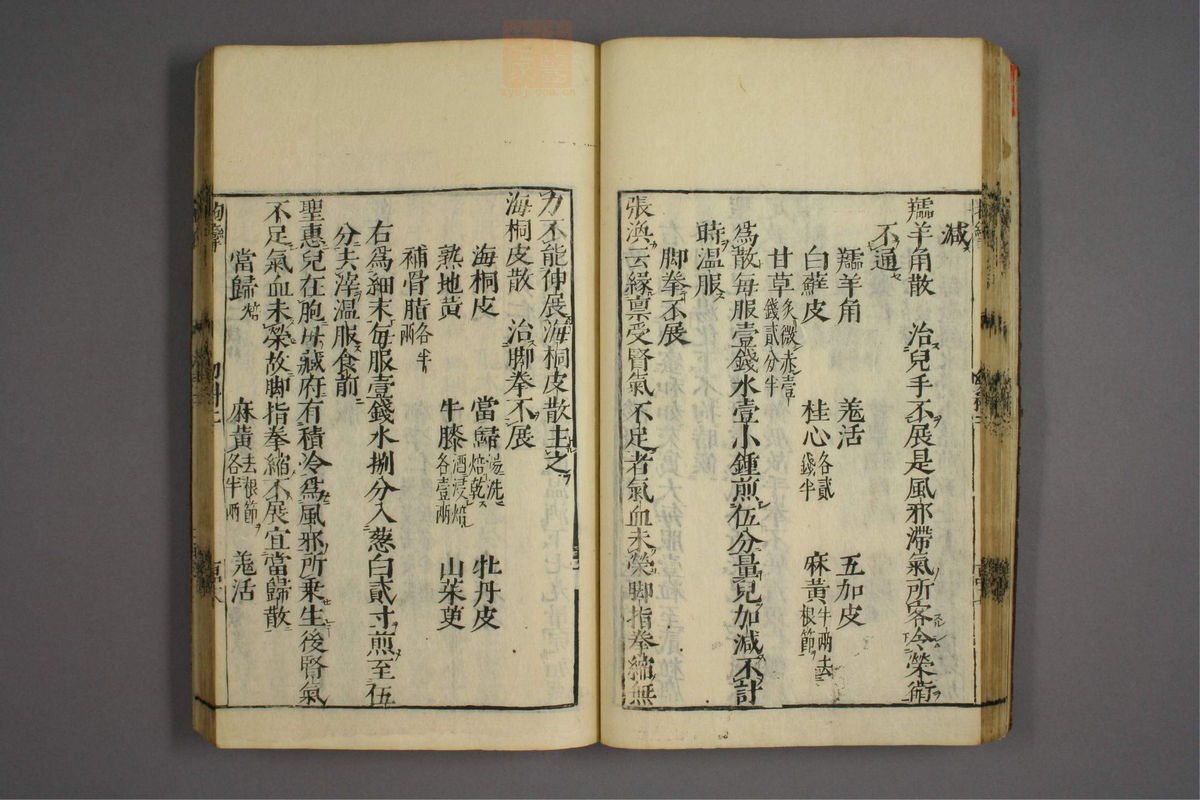 減
羚羊角散 治兒手不展是風邪滯氣所客令榮衛
不通
羚羊角 羗活 五加皮
白蘚皮 桂心各貳錢半 麻黃半兩去根節
甘草炙微赤壹錢貳分半
爲散每服壹錢水壹小鍾煎伍分量兒加減不計
時温服
脚拳不展
張渙云緣禀受腎氣不足者氣血未榮脚指拳縮無
力不能伸展海桐皮散主之
海桐皮散 治脚拳不展
海桐皮 當歸湯洗焙乾 牡丹皮
熟地黃 牛膝酒浸焙各壹兩 山茱萸
補骨脂各半兩
右爲細末每服壹錢水捌分入葱白貳寸煎至伍
分去滓温服食前
聖惠兒在胞母藏府有積冷爲風邪所乗生後腎氣
不足氣血未榮故脚指拳縮不展宜當歸散
當歸焙 麻黃去根節各半兩 羗活